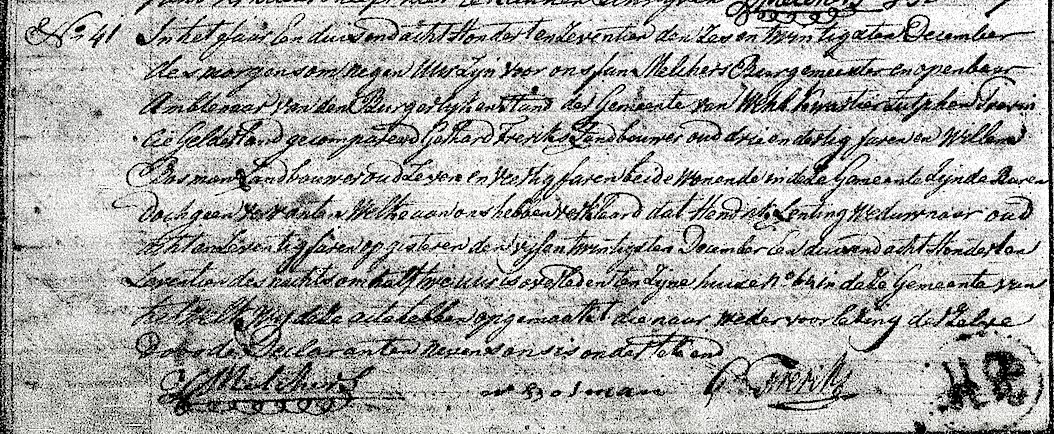 No. 41 In het Jaar Een duisend acht Hondert en Zeventien den Zes en twintigsten December
des morgens om Negen Uur zijn voor ons Jan Melchers Burgemeester en openbaar
Ambtenaar van den Burgerlyken Stand der Gemeente van Kwartier Zutphen Provin
cie Gelderland gecompareerd Gerhard Freriks Landbouwer oud drie en dertig Jaren en Willem
Bosman Landbouwer oud Zeven en veertig Jaren beide wonende in deze Gemeente zynde Buren
doch geen verwanten Welke aan ons hebben verklaard dat Hendrik Lenting Weduwnaar oud
Acht en Zeventig Jaren op gisteren den Vyf en twintigsten December Een duisend acht Hondert en
Zeventien des nachts om half twe uur is overleden ten Zyne huize No in deze Gemeente van
wy deze acte hebben opgemaakt die naar weder voorlezing derzelve
door de Declaranten nevens ons is ondertekend
Melchers W Bosman G Freriks